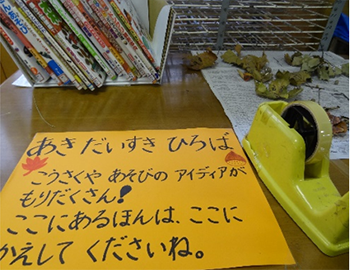 あき だいすき ひろば
こうさくや あそびの アイディアが
もりだくさん!
ここにあるほんは、ここに
かえして くださいね。